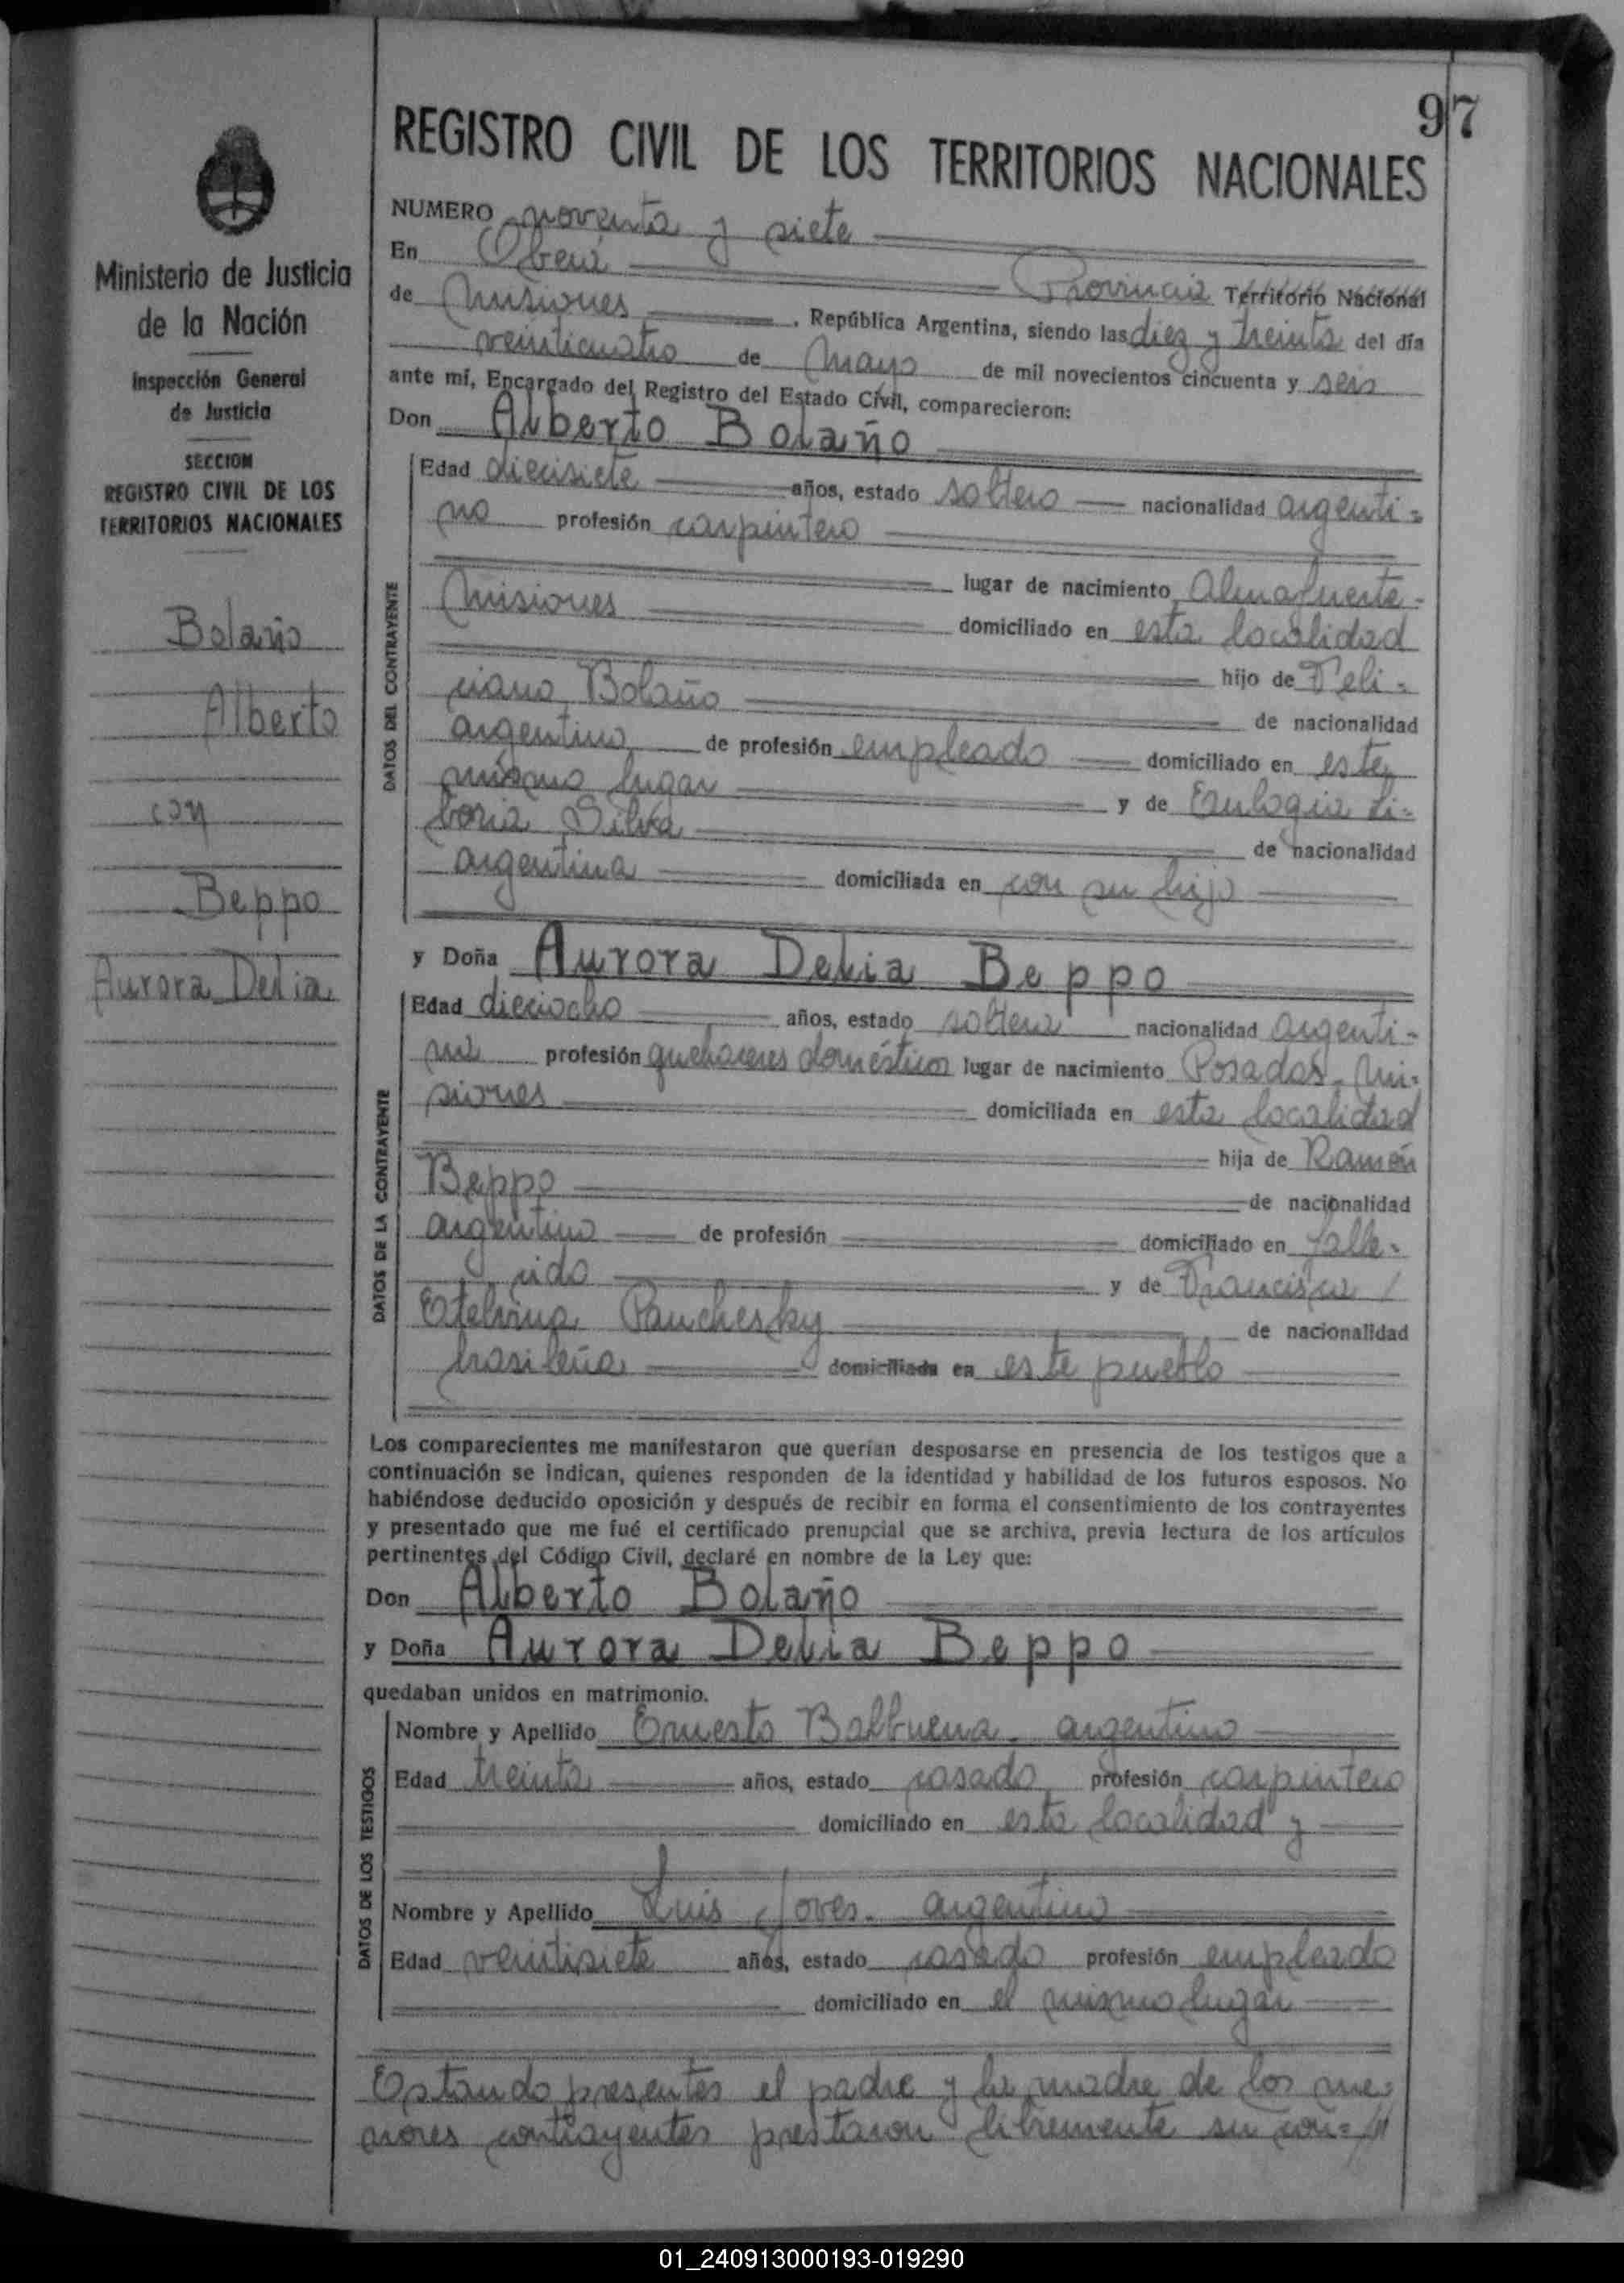 97
REGISTRO CIVIL DE LOS TERRITORIOS NACIONALES
Ministerio de Justicia
de la Nación
Inspección General
de Justicia
SECCION
REGISTRO CIVIL DE LOS
TERRITORIOS NACIONALES
Bolaño
Alberto
con
Beppo
Aurora Delia
NUMERO noventa y siete
En Oberá Provincia Territorio Nacional
de Misiones, República Argentina, siendo las diez y treinta del día
veinticuatro de Mayo de mil novecientos cincuenta y seis
ante mí, Encargado del Registro del Estado Civil, comparecieron:
Don Alberto Bolaño
DATOS DEL CONTRAYENTE
Edad diecisiete años, estado soltero nacionalidad argenti=
no profesión carpintero
lugar de nacimiento Almafuerte-
Misiones domiciliado en esta localidad
hijo de Feli=
ciano Bolaño de nacionalidad
argentino de profesión empleado domiciliado en este
mismo lugar y de Eulogia Li=
boria Silva de nacionalidad
argentina domiciliada en con su hijo
y Doña Aurora Delia Beppo
DATOS DE LA CONTRAYENTE
Edad dieciocho años, estado soltera nacionalidad argenti-
na profesión quehaceres domésticos lugar de nacimiento Posadas. Mi=
siones domiciliada en esta localidad
hija de Ramón
Beppo de nacionalidad
argentino de profesión domiciliado en falle-
cido y de Francisca
Etelvina Panchesky de nacionalidad
brasileña domiciliada en este pueblo
Los comparecientes me manifestaron que querían desposarse en presencia de los testigos que a
continuación se indican, quienes responden de la identidad y habilidad de los futuros esposos. No
habiéndose deducido oposición y después de recibir en forma el consentimiento de los contrayentes
y presentado que me fué el certificado prenupcial que se archiva, previa lectura de los artículos
pertinentes del Código Civil, declaré en nombre de la Ley que:
Don Alberto Bolaño
y Doña Aurora Delia Beppo
quedaban unidos en matrimonio.
DATOS DE LOS TESTIGOS
Nombre y Apellido Ernesto Balbuena. argentino
Edad treinta años, estado casado profesión carpintero
domiciliado en esta localidad y
Nombre y Apellido Luis Joves. argentino
Edad veintisiete años, estado casado profesión empleado
domiciliado en el mismo lugar
Estando presentes el padre y la madre de los me=
nores contrayentes prestaron libremente su con=//
01_240913000193-019290